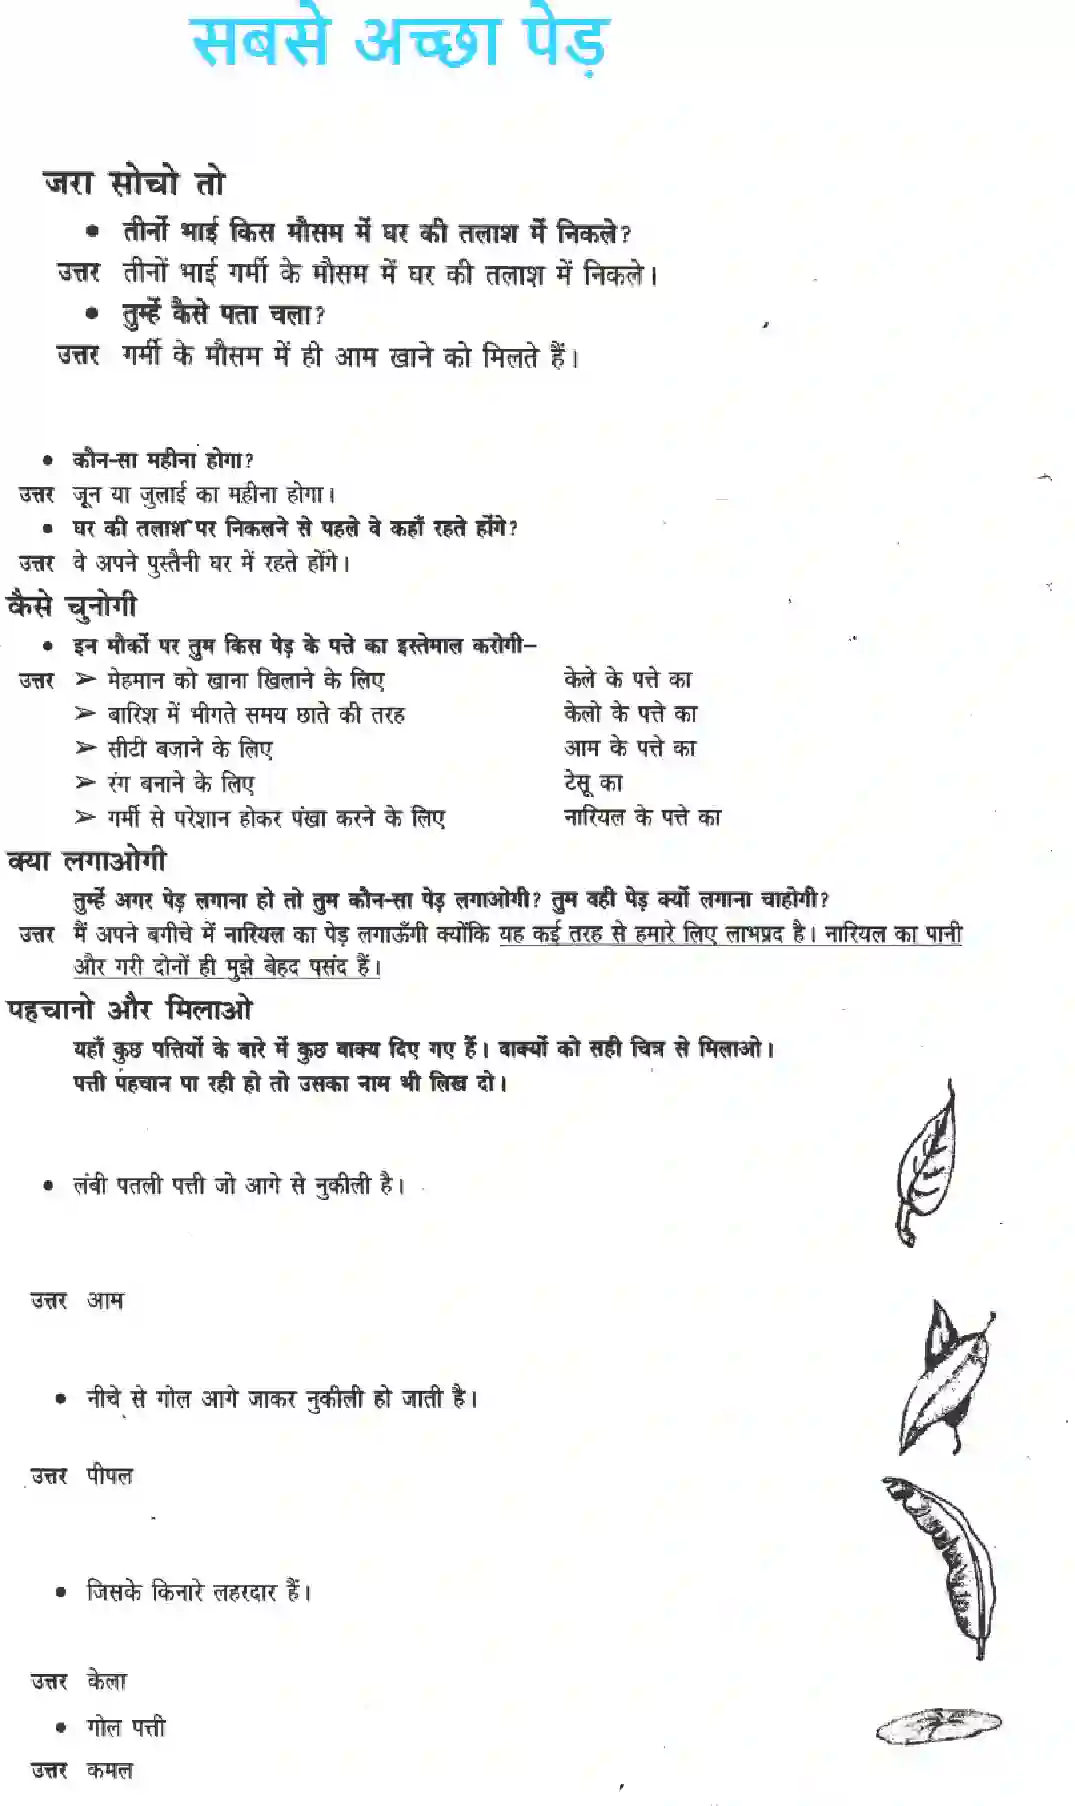 सबसे अच्छा पेड़
जरा सोचो तो
• तीनों भाई किस मौसम में घर की तलाश में निकले?
उत्तर तीनों भाई गर्मी के मौसम में घर की तलाश में निकले।
• तुम्हें कैसे पता चला?
उत्तर गर्मी के मौसम में ही आम खाने को मिलते हैं।
• कौन-सा महीना होगा?
उत्तर जून या जुलाई का महीना होगा।
• घर की तलाश पर निकलने से पहले वे कहाँ रहते होंगे?
उत्तर वे अपने पुस्तैनी घर में रहते होंगे।
कैसे चुनोगी
• इन मौकों पर तुम किस पेड़ के पत्ते का इस्तेमाल करोगी–
उत्तर ➢ मेहमान को खाना खिलाने के लिए केले के पत्ते का
➢ बारिश में भीगते समय छाते की तरह केलो के पत्ते का
➢ सीटी बजाने के लिए आम के पत्ते का
➢ रंग बनाने के लिए टेसू का
➢ गर्मी से परेशान होकर पंखा करने के लिए नारियल के पत्ते का
क्या लगाओगी
तुम्हें अगर पेड़ लगाना हो तो तुम कौन-सा पेड़ लगाओगी? तुम वही पेड़ क्यों लगाना चाहोगी?
उत्तर मैं अपने बगीचे में नारियल का पेड़ लगाऊँगी क्योंकि यह कई तरह से हमारे लिए लाभप्रद है। नारियल का पानी
और गरी दोनों ही मुझे बेहद पसंद हैं।
पहचानो और मिलाओ
यहाँ कुछ पत्तियों के बारे में कुछ वाक्य दिए गए हैं। वाक्यों को सही चित्र से मिलाओ।
पत्ती पहचान पा रही हो तो उसका नाम भी लिख दो।
• लंबी पतली पत्ती जो आगे से नुकीली है।
उत्तर आम
• नीचे से गोल आगे जाकर नुकीली हो जाती है।
उत्तर पीपल
• जिसके किनारे लहरदार हैं।
उत्तर केला
• गोल पत्ती
उत्तर कमल